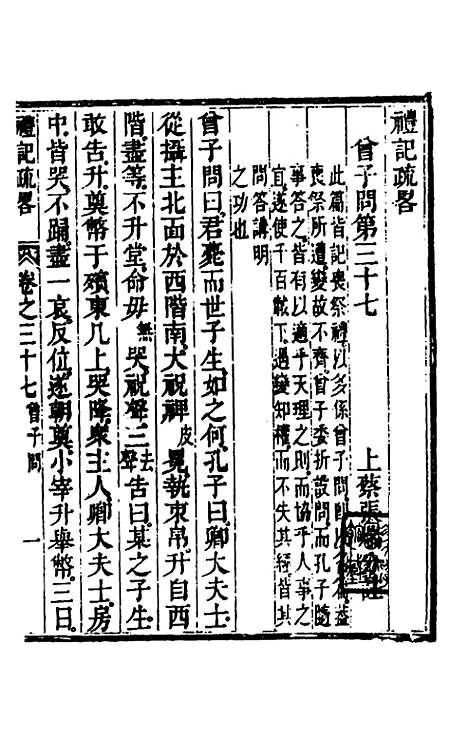 禮記疏畧
曾子問第三十七
上蔡張
此篇皆記喪祭禮以多係曾子問
喪祭所遭變故不齊曾子委折設問而孔子隨
事答之皆有以適乎天理之則而協乎人事之
宜遂使千百載下遇變知權而不失其經皆其
問答講明
之功也
曾子問曰君薨而世子生如之何孔子曰卿大夫士
從攝主北面於西階南大祝裨皮冕執束帛升自西
階盡等不升堂命毋無哭祝聲三去聲告曰某之子生
敢告升奠幣于殯東几上哭降衆主人卿大夫士房
中皆哭不踊盡一哀反位遂朝奠小宰升舉幣三日
禮記疏畧 卷之三十七 曾子問 一